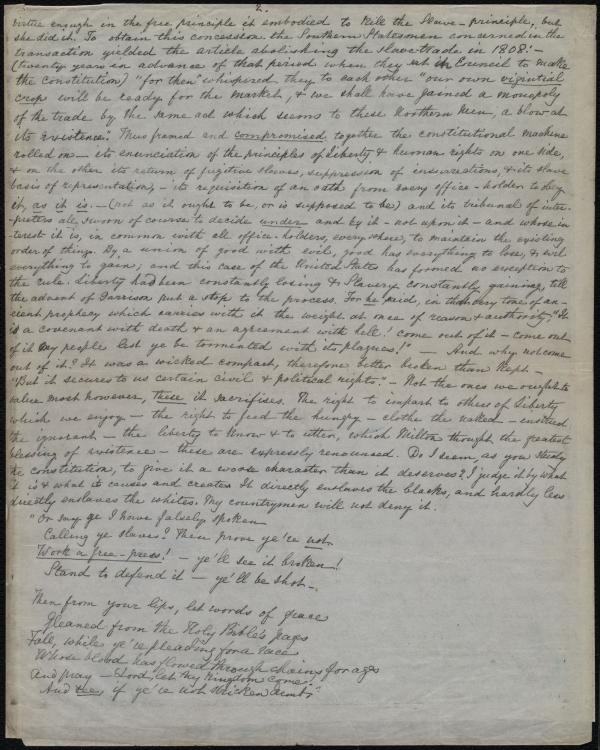 2.
virtue enough in the free principle it embodied to kill the Slave-principle, but
she did it. To obtain this concession the Southern Statesmen concerned in the
transaction yielded the article abolishing the slave trade in 1808:-
(twenty years in advance of that period when they sat in Council to make
the constitution) "for then" whispered they to each other "our own vigintial
crop will be ready for the market, & we shall have gained a monopoly
of the trade by the same act which seems to these Northern men, a blow at
its existence." Thus framed and compromised together the constitutional machine
rolled on - its enunciation of the principles of Liberty, & human rights on one side,
& on the other its return of fugitive slaves, suppression of insurrections, & its slave
basis of representation, - its requisition of an oath from every office-holder to
it, as it is. - (not as it ought to be, or is supposed to be) and its tribunal of inter-
preters all sworn of course to decide under and by it - not upon it - and whose in-
terest it is, in common with all office-holders, everywhere, to maintain the existing
order of things. By a union of good with evil, good has everything to lose, & evil
everything to gain; and this case of the United States has formed no exception to
the rule. Liberty had been constantly losing & Slavery constantly gaining, till
the advent of Garrison put a stop to the process. For he said, in the very tone of an-
cient prophecy which carries with it the weight at once of reason & authority, "It
is a covenant with death & an agreement with hell! come out of it - come out
of it my people lest ye be tormented with its plagues!" - And why not come
out of it? It was a wicked compact, therefore better broken than kept -
"But it secures to us certain civil & political rights." - Not the ones we ought to
value most however, these it sacrifises. The right to impart to others of Liberty
which we enjoy - the right to feed the hungry - clothe the naked - instruct
the ignorant - the liberty to know & to utter, which Milton thought the greatest
blessing of existence - these are expressly renounced. Do I seem, as you study
the constitution, to give it a worse character than it deserves? I judge it by what
it is & what it causes and creates. It directly enslaves the blacks, and hardly less
directly enslaves the whites. My countrymen will not deny it.
"Or say ye I have falsely spoken
Calling ye slaves? Then prove ye're not.
Work a free-press! - ye'll see it broken!
Stand to defend it - ye'll be shot -
Then from your lips, let words of grace
Gleaned from the Holy Bible's pages
Fall, while ye're pleading for a race
Whose blood has flowed through chains for ages
And pray - "Lord, let thy Kingdom come!"
And see if ye're not stricken dumb."